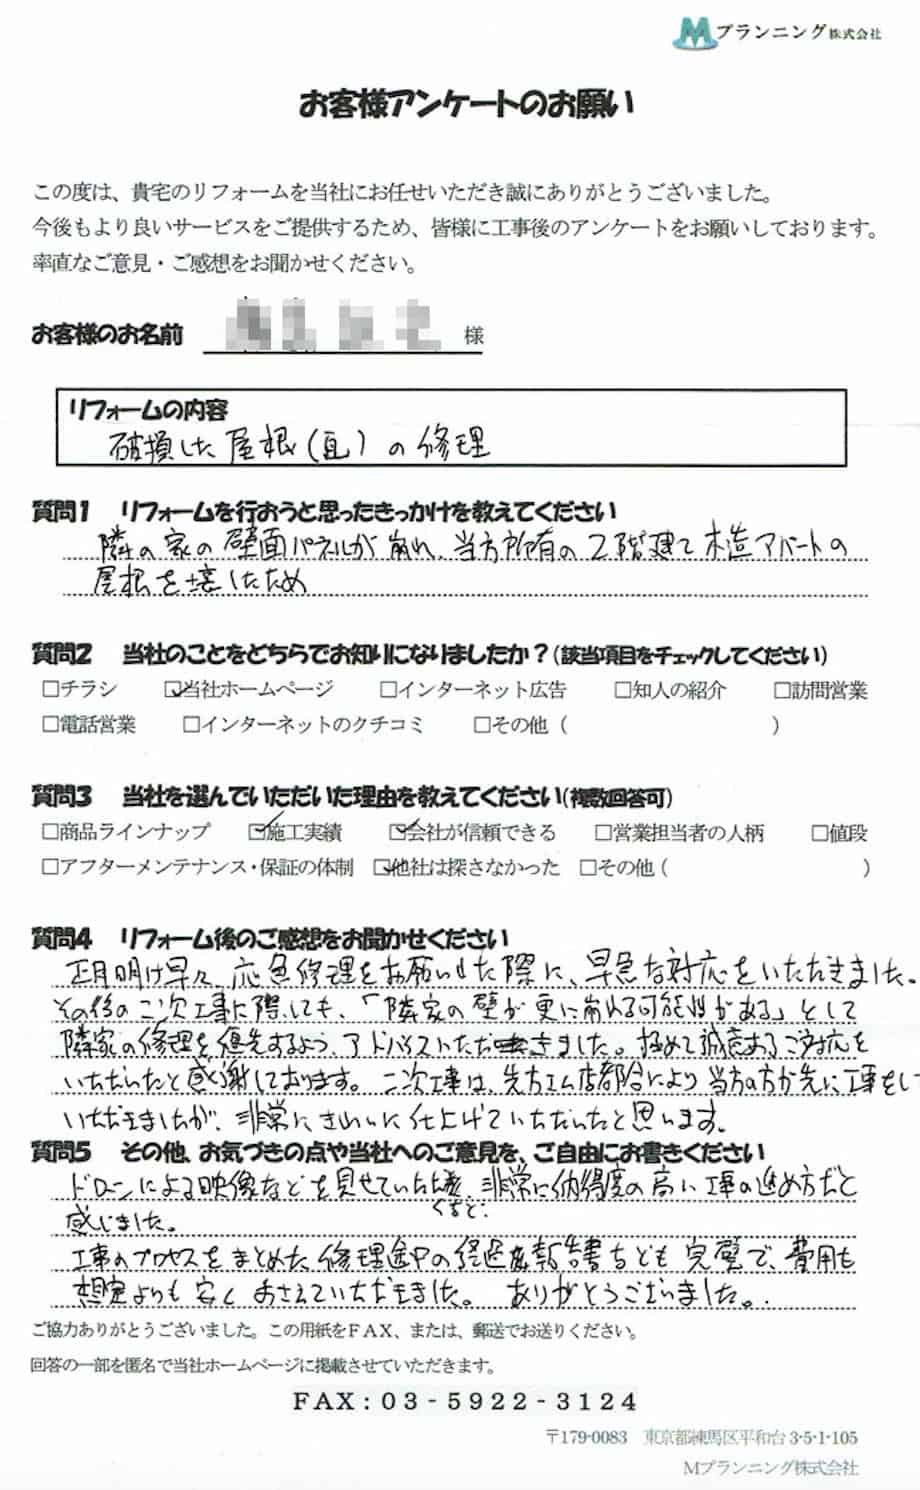 Mプランニング株式会社
お客様アンケートのお願い
この度は、貴宅のリフォームを当社にお任せいただき誠にありがとうございました。
今後もより良いサービスをご提供するため、皆様に工事後のアンケートをお願いしております。
率直なご意見・ご感想をお聞かせください。
お客様のお名前 様
リフォームの内容
破損した屋根(瓦)の修理
質問1 リフォームを行おうと思ったきっかけを教えてください
隣の家の壁面パネルが崩れ、当方所有の2階建て木造アパートの
屋根を壊したため
質問2 当社のことをどちらでお知りになりましたか？(該当項目をチェックしてください)
□チラシ ☑当社ホームページ □インターネット広告 □知人の紹介 □訪問営業
□電話営業 □インターネットのクチコミ □その他( )
質問3 当社を選んでいただいた理由を教えてください(複数回答可)
□商品ラインナップ ☑施工実績 ☑会社が信頼できる □営業担当者の人柄 □値段
□アフターメンテナンス・保証の体制 ☑他社は探さなかった □その他( )
質問4 リフォーム後のご感想をお聞かせください
正月明け早々、応急修理をお願いした際に、早急な対応をいただきました。
その後の二次工事に際しても、「隣家の壁が更に崩れる可能性がある」として
隣家の修理を優先するよう、アドバイスいただきました。極めて誠意あるご対応を
いただいたと感謝しております。二次工事は、先方工ム店都合により当方の方が先に工事をして
いただきましたが、非常にきれいに仕上げていただいたと思います。
質問5 その他、お気づきの点や当社へのご意見を、ご自由にお書きください
ドローンによる映像などを見せていただき、非常に納得度の高い工事の進め方だと
感じました。
工事のプロセスをまとめた修理途中の経過報告書なども完璧で、費用も
想定よりも安くおさえていただきました。 ありがとうございました。
ご協力ありがとうございました。この用紙をFAX、または、郵送でお送りください。
回答の一部を匿名で当社ホームページに掲載させていただきます。
FAX：03-5922-3124
〒179-0083 東京都練馬区平和台3-5-1-105
Mプランニング株式会社